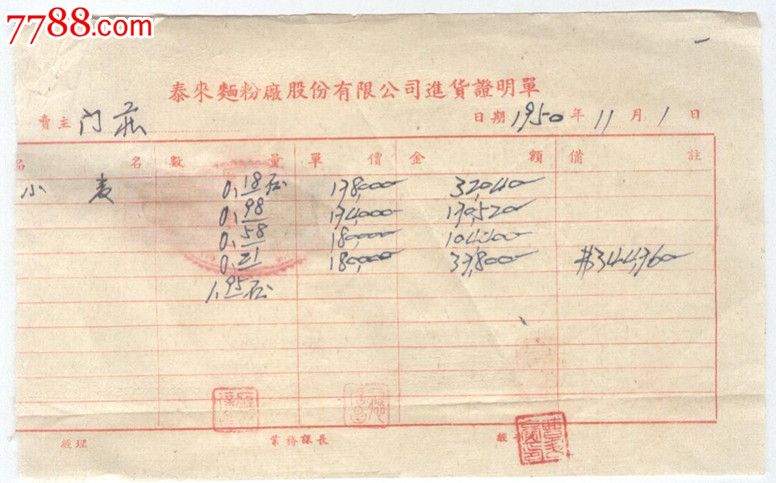 7788.com
泰來麵粉廠股份有限公司進貨證明單
賣主 门莊 日期 1950 年 11 月 1 日
名 名 數 量 單 價 金 額 備 註
小麦 0.18石 178,000 32,040
0.98 134,000 130,520
0.58 180,000 104,400
0.21 180,000 37,800 #344,760
1.95石
經理 業務課長